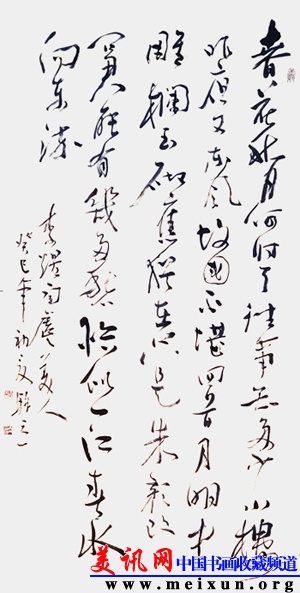 春花秋月何时了往事知多少小樓
昨夜又东风故國不堪回首月明中
雕欄玉砌應猶在只是朱颜改
問君能有幾多愁恰似一江春水
向东流
李煜词虞美人
癸巳年初夏
美讯网 中国书画收藏频道
www.meixun.org